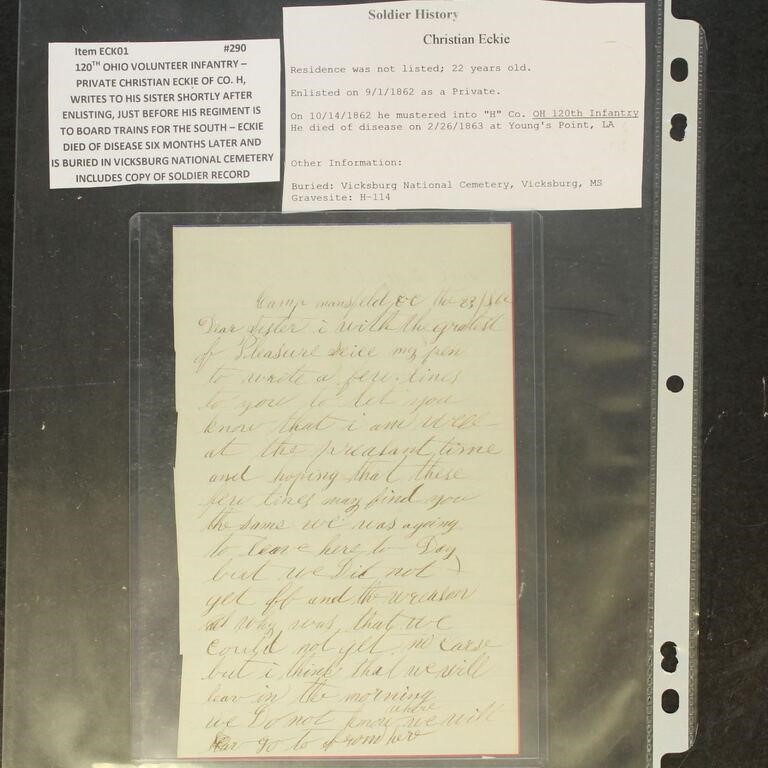 Item ECK01 #290
120TH OHIO VOLUNTEER INFANTRY –
PRIVATE CHRISTIAN ECKIE OF CO. H,
WRITES TO HIS SISTER SHORTLY AFTER
ENLISTING, JUST BEFORE HIS REGIMENT IS
TO BOARD TRAINS FOR THE SOUTH – ECKIE
DIED OF DISEASE SIX MONTHS LATER AND
IS BURIED IN VICKSBURG NATIONAL CEMETERY
INCLUDES COPY OF SOLDIER RECORD
Soldier History
Christian Eckie
Residence was not listed; 22 years old.
Enlisted on 9/1/1862 as a Private.
On 10/14/1862 he mustered into "H" Co. OH 120th Infantry
He died of disease on 2/26/1863 at Young's Point, LA
Other Information:
Buried: Vicksburg National Cemetery, Vicksburg, MS
Gravesite: H-114
Camp mansfield the 23
Dear Sister i with the gratest
of Pleasure my pen
to wrote a few lines
to you to let you
know that i am well
at the preasant time
and hoping that these
few lines may find you
the same we was agoing
to leave here to Day
but we Did not
get of and the wreason
why was that we
could not get
but i think that we will
leav in the morning
we Do not know where we will
go to from her